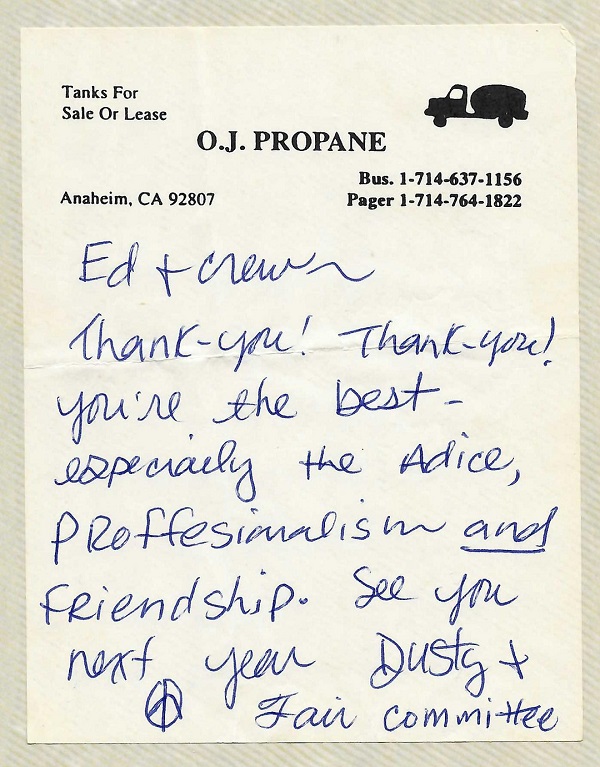 Tanks For
Sale Or Lease
O.J. PROPANE
Bus. 1-714-637-1156
Anaheim, CA 92807
Pager 1-714-764-1822
Ed + crew
Thank-you! Thank-you!
you're the best -
especially the Adice,
proffesionalism and
friendship. See you
next year Dusty +
Fair committee